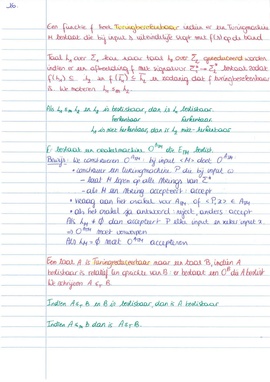 26.
Een functie f heet Turingberekenbaar indien er een Turingmachine
M bestaat die bij input s uiteindelijk stopt met f(s) op de band
Taal L₁ over Σ₁ kan naar taal L₂ over Σ₂ gereduceerd worden
indien er een afbeelding f met signatuur Σ₁* → Σ₂* bestaat zodat
f(L₁) ⊆ L₂ en f(L̄₁) ⊆ L̄₂ en zodanig dat f turingberekenbaar
is. We noteren L₁ ≤m L₂
Als L₁ ≤m L₂ en L₂ is beslisbaar, dan is L₁ beslisbaar.
herkenbaar herkenbaar
L₁ is niet herkenbaar, dan is L₂ niet-herkenbaar
Er bestaat een orakelmachine O^ATM die ETM beslist
Bewijs: We construeren O^ATM: bij input <M> doet O^ATM
• construeer een Turingmachine P die bij input w
- laat M lopen op alle strings van Σ*
- als M een string accepteert: accept
• vraag aan het orakel van ATM of <P,x> ∈ ATM
• als het orakel ja antwoord: reject, anders accept
Als LM ≠ ∅ dan accepteert P elke input en zeker input x
⇒ O^ATM moet verwerpen
Als LM = ∅ moet O^ATM accepteren
Een taal A is Turingreduceerbaar naar een taal B, indien A
beslisbaar is relatief ten opzichte van B: er bestaat een O^B die A beslist
We schrijven A ≤T B.
Indien A ≤T B en B is beslisbaar, dan is A beslisbaar
Indien A ≤m B dan is A ≤T B.